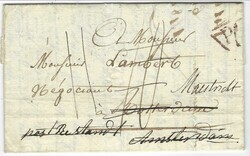 A Monsieur
Monsieur Lambert
Négociant Mastricht
Rotterdam
post Restandt Amsterdam